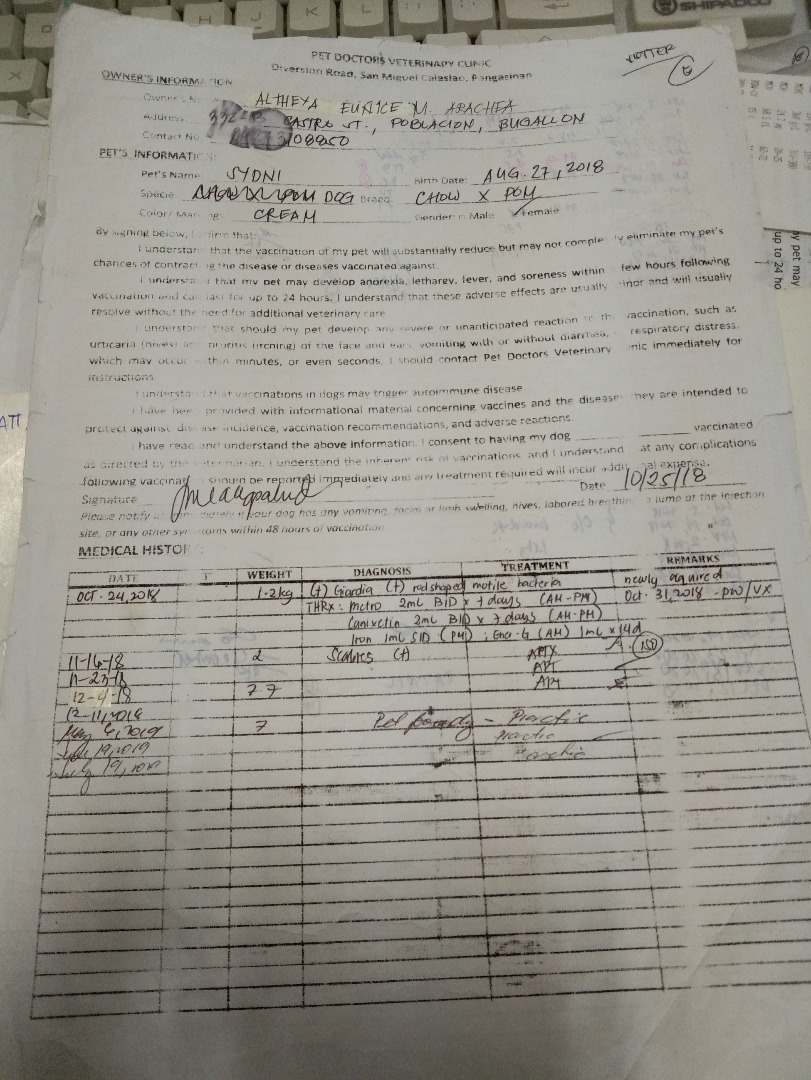 SHIPADOO
PET DOCTORS VETERINARY CLINIC
Diversion Road, San Miguel Calasiao, Pangasinan
OWNER'S INFORMATION
ALTHEYA EUNICE M. ABACHEA
Address CASTRO ST., POBLACION, BUGALLON
Contact No 08850
PET'S INFORMATI
Pet's Name SYDNI Birth Date: AUG. 27, 2018
Specie DOG Breed CHOW X POM
Color/ Mar CREAM Gender Male Female
By signing below, I firm that:
I understan that the vaccination of my pet will substantially reduce but may not comple ly eliminate my pet's
chances of contract ng the disease or diseases vaccinated against.
I understa that my pet may develop anorexia, lethargy, fever, and soreness within few hours following
vaccination and can last for up to 24 hours. I understand that these adverse effects are usually inor and will usually
resolve without the need for additional veterinary care
I understan that should my pet develop any severe or unanticipated reaction to th vaccination, such as
urticaria (hives) an pruritis (itching) of the face and ears, vomiting with or without diarrhea, respiratory distress,
which may occur thin minutes, or even seconds, I should contact Pet Doctors Veterinary nic immediately for
instructions
I understa that vaccinations in dogs may trigger autoimmune disease
I have bee provided with informational material concerning vaccines and the disease hey are intended to
protect against dis ase incidence, vaccination recommendations, and adverse reactions.
I have read and understand the above information. I consent to having my dog vaccinated
as directed by the I understand the inherent risk of vaccinations, and I understand at any complications
following vaccinat should be reported immediately and any treatment required will incur addi al expense.
Signature Date 10/25/18
Please notify if your dog has any vomiting, facial or limb swelling, hives, labored breathin a lump at the injection
site, or any other sy toms within 48 hours of vaccination
MEDICAL HISTOR
DATE T WEIGHT DIAGNOSIS TREATMENT REMARKS
OCT. 24, 2018 1.2kg (+) Giardia (+) rod shaped motile bacteria newly acquired
THRx: Metro 2mL BID x 7 days (AM-PM) Oct. 31, 2018 - DW/VX
Canixetin 2mL BID x 7 days (AM-PM)
Iron 1mL SID (PM) ; Ener-G (AM) 1mL x 14d
11-16-18 2 Scabies (+) APTX 150
11-23-18 APT
12-4-18 7 7 APT
12-11, 2018
May 6, 2019 7 Practic
19, 2019
July 19,
y pet may
up to 24 ho